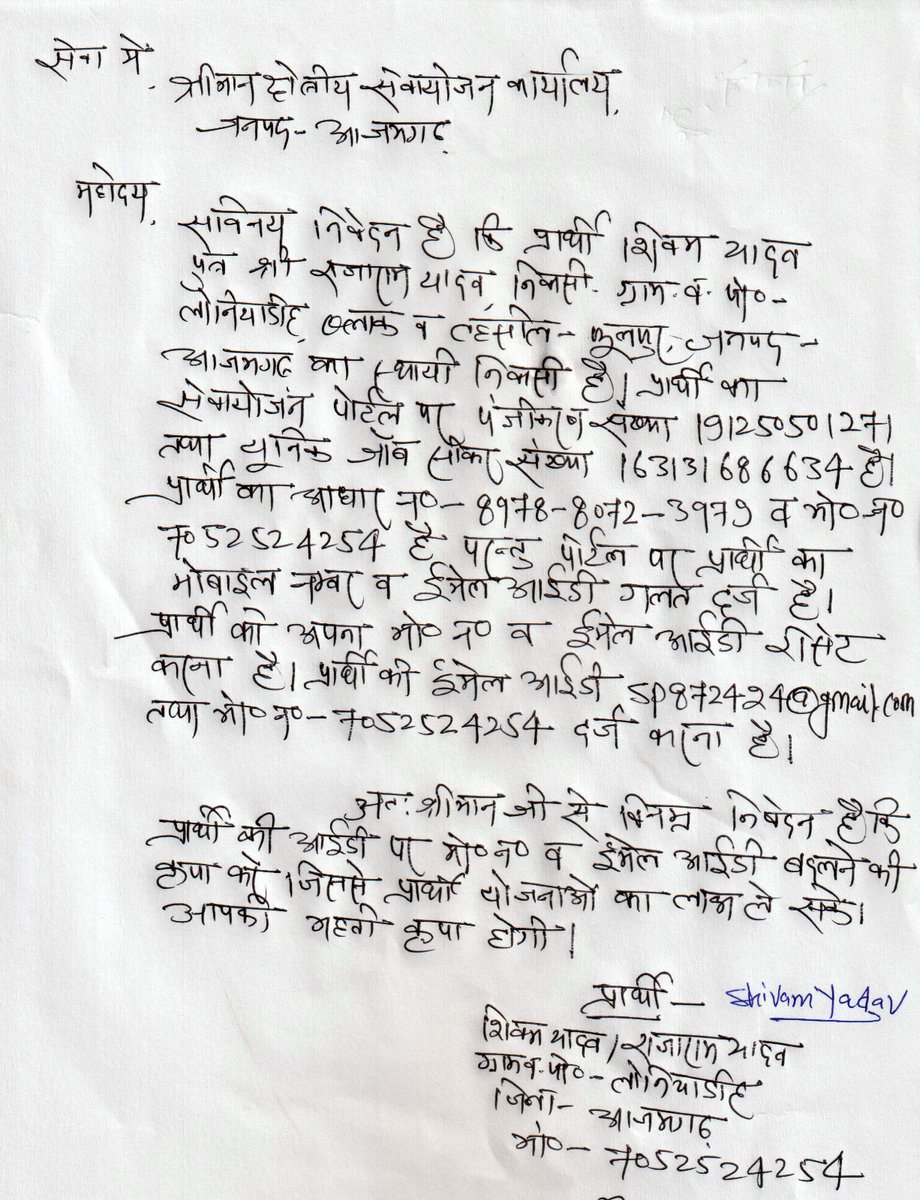 सेवा में,
श्रीमान क्षेत्रीय सेवायोजन कार्यालय,
जनपद- आजमगढ़
महोदय,
सविनय निवेदन है कि प्रार्थी शिवम यादव
पुत्र श्री राजाराम यादव, निवासी- ग्राम व पो०-
लोनियाडीह, ब्लाक व तहसील- फूलपुर, जनपद-
आजमगढ़ का स्थायी निवासी है। प्रार्थी का
सेवायोजन पोर्टल पर पंजीकरण संख्या 191250501271
तथा यूनिक जॉब सीकर संख्या 163131686634 है।
प्रार्थी का आधार न०- 8978-8072-3979 व मो० न०
7052524254 है परन्तु पोर्टल पर प्रार्थी का
मोबाइल नम्बर व ईमेल आईडी गलत दर्ज है।
प्रार्थी को अपना मो० न० व ईमेल आईडी रीसेट
करना है। प्रार्थी की ईमेल आईडी sp872424@gmail.com
तथा मो० न०- 7052524254 दर्ज करना है।
अतः श्रीमान जी से विनम्र निवेदन है कि
प्रार्थी की आईडी पर मो० न० व ईमेल आईडी बदलने की
कृपा करें, जिससे प्रार्थी योजनाओं का लाभ ले सके।
आपकी महती कृपा होगी।
प्रार्थी - Shivam Yadav
शिवम यादव / राजाराम यादव
ग्राम व पो०- लोनियाडीह
जिला- आजमगढ़
मो०- 7052524254